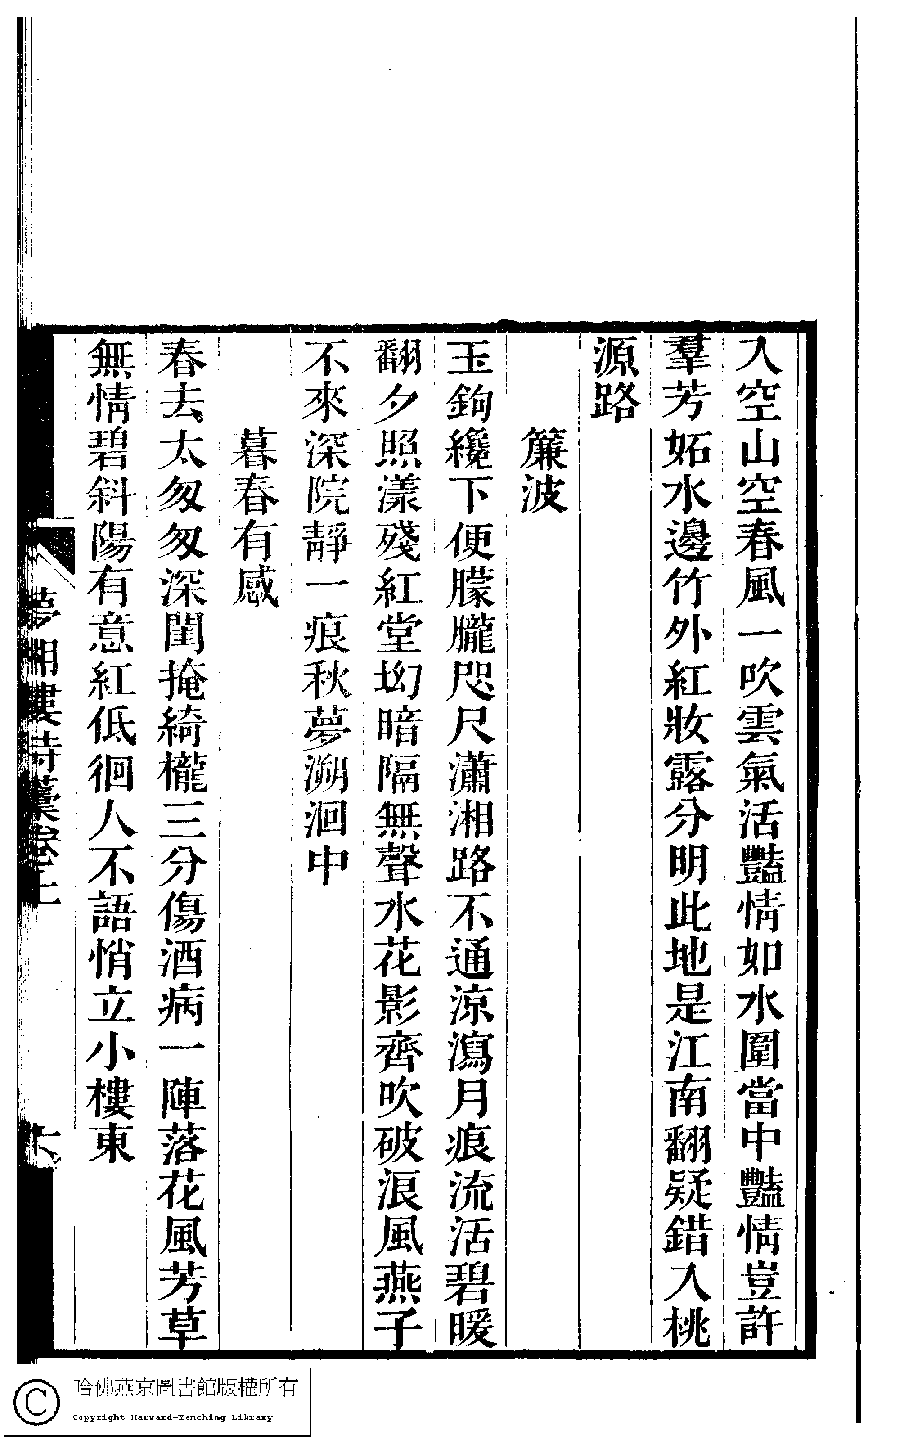 入空山空春風一吹雲氣活豔情如水圍當中豔情豈許
羣芳妬水邊竹外紅妝露分明此地是江南翻疑錯入桃
源路
簾波
玉鉤纔下便朦朧咫尺瀟湘路不通涼瀉月痕流活碧暖
翻夕照漾殘紅堂坳暗隔無聲水花影齊吹破浪風燕子
不來深院靜一痕秋夢溯洄中
暮春有感
春去太匆匆深閨掩綺櫳三分傷酒病一陣落花風芳草
無情碧斜陽有意紅低徊人不語悄立小樓東
夢湘樓詩藁卷上
哈佛燕京圖書館版權所有
Copyright Harvard-Yenching Library